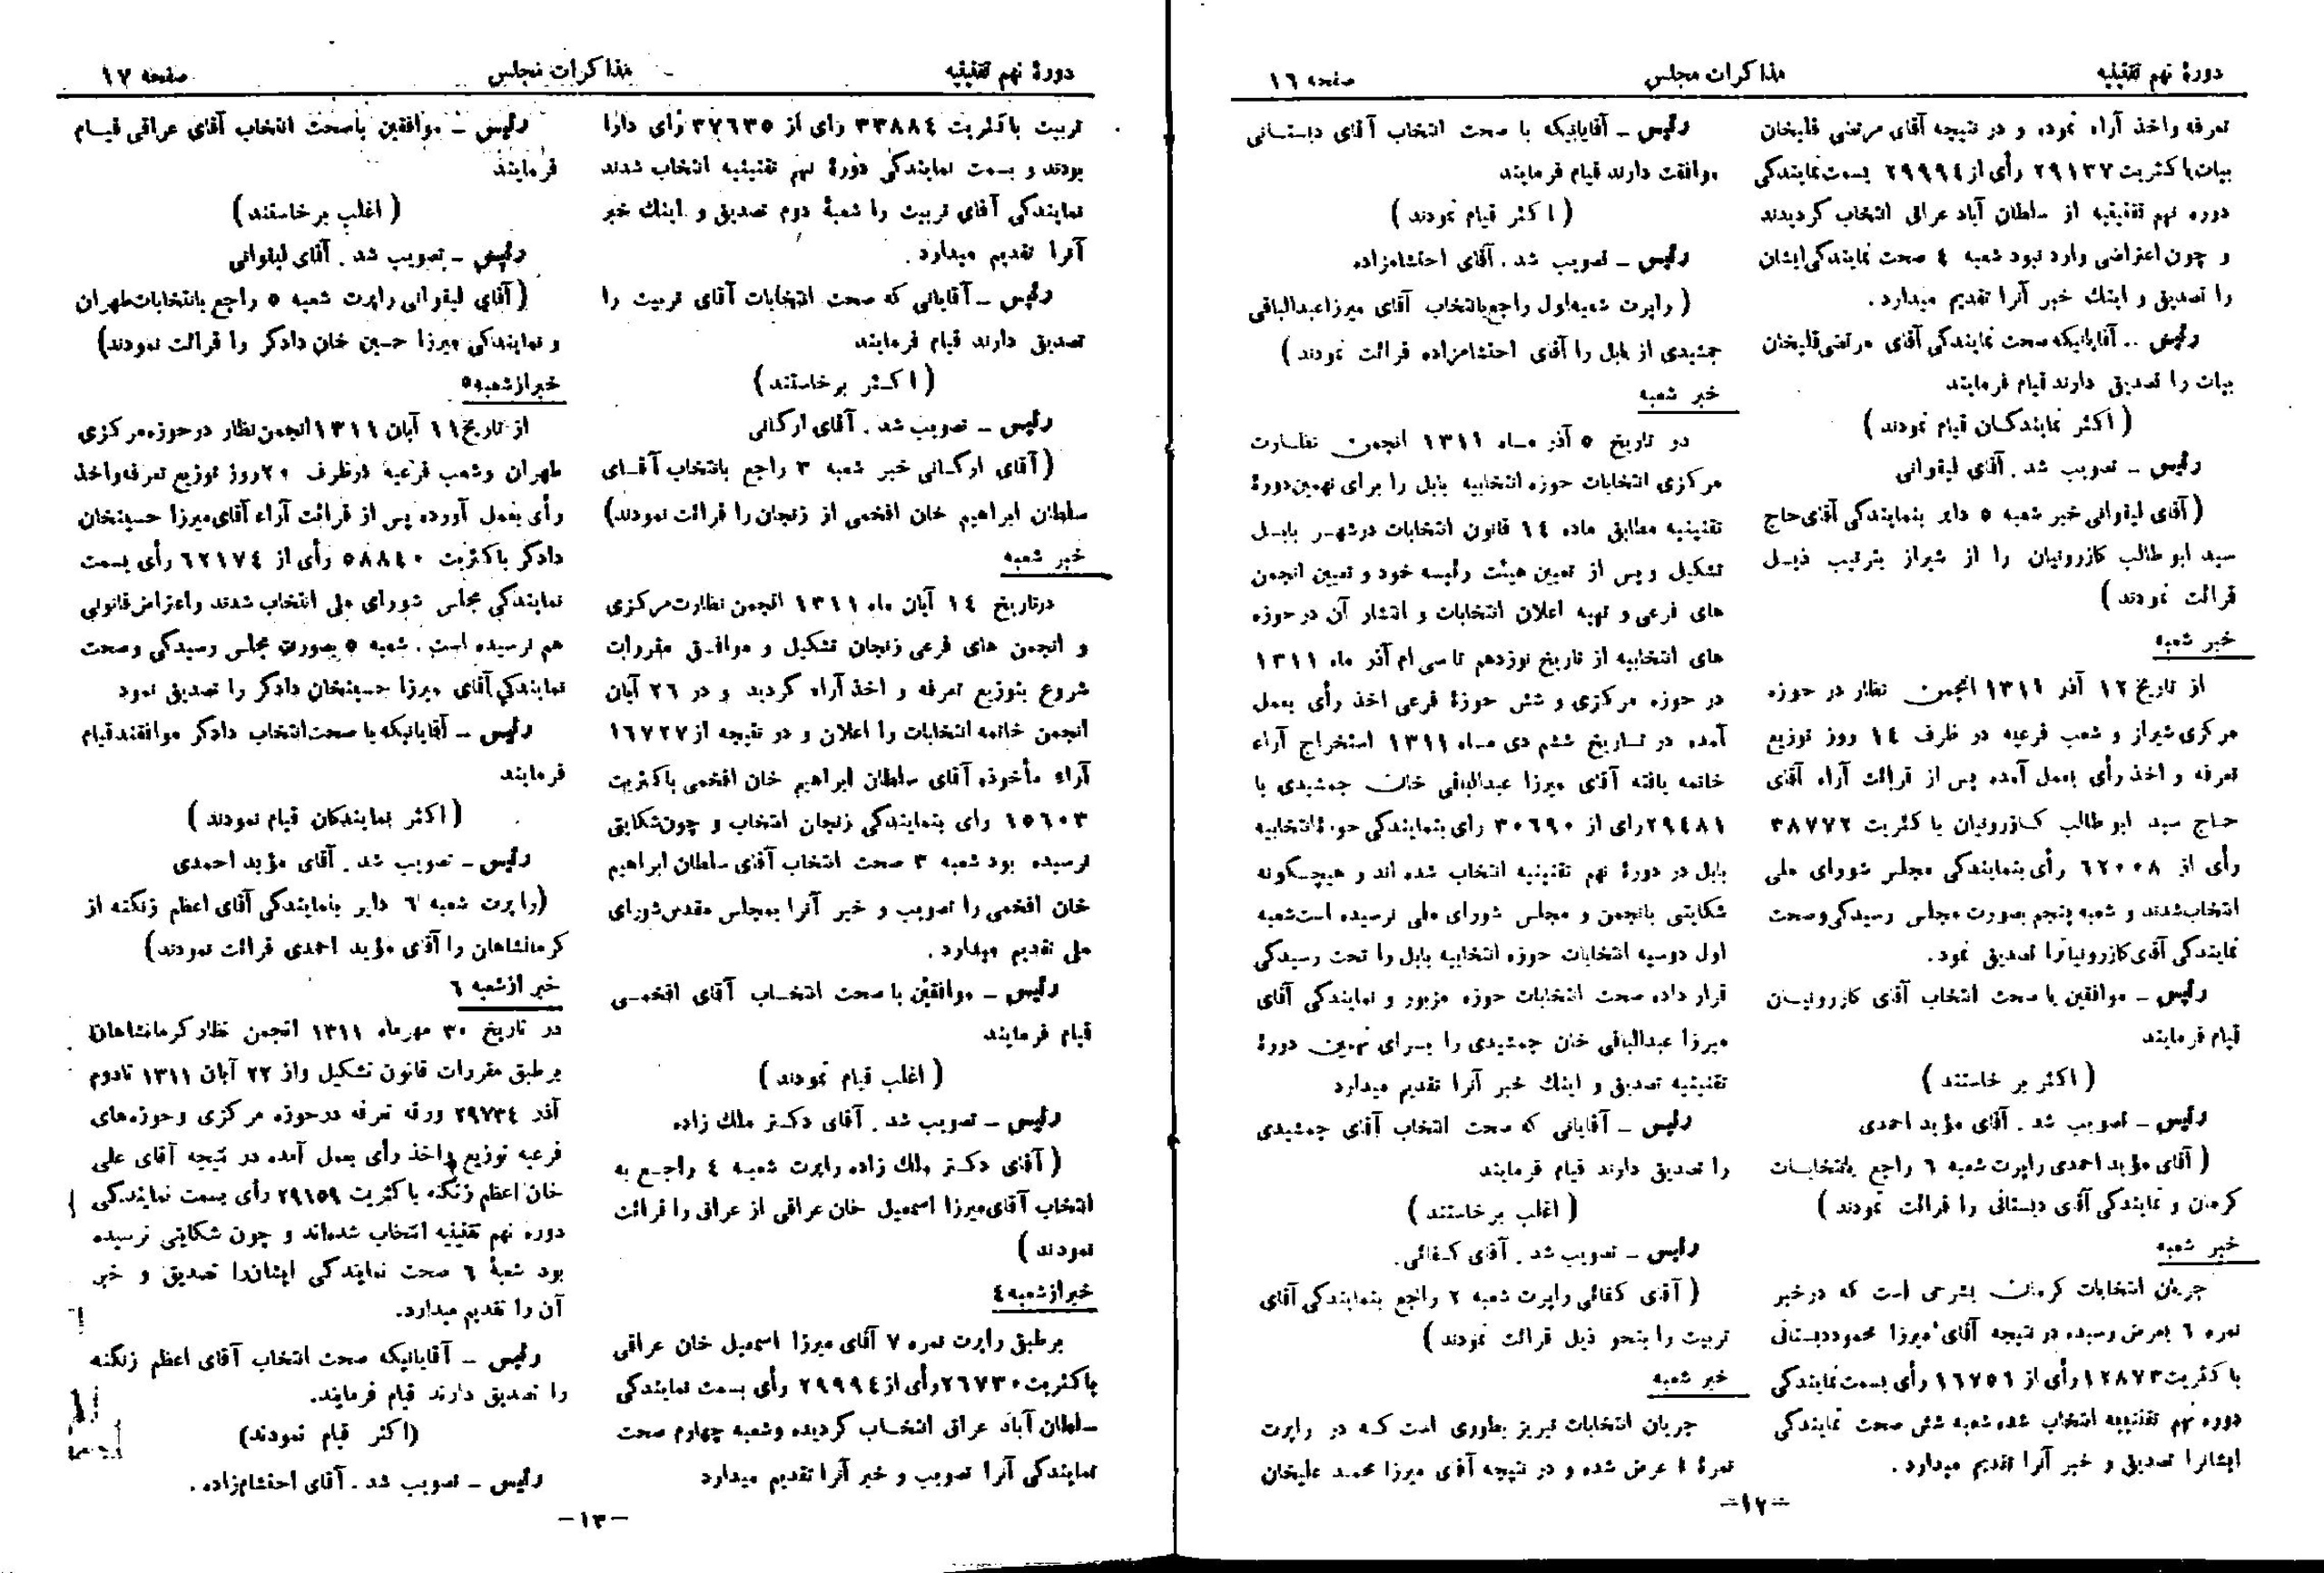 دورهٔ نهم تقنینیه
مذاکرات مجلس
صفحه ۱۶
تعرفه واخذ آراء نموده و در نتیجه آقای مرتضی قلیخان
بیات باکثریت ۲۹۱۳۷ رأی از ۲۹۹۹٤ بسمت نمایندگی
دوره نهم تقنینیه از سلطان آباد عراق انتخاب گردیدند
و چون اعتراضی وارد نبود شعبه ٤ صحت نمایندگی ایشان
را تصدیق و اینك خبر آنرا تقدیم میدارد.
رئیس .. آقایانیکه صحت نمایندگی آقای مرتضی قلیخان
بیات را تصدیق دارند قیام فرمایند
(اکثر نمایندگان قیام نمودند)
رئیس ـ تصویب شد. آقای لیقوانی
(آقای لیقوانی خبر شعبه ٥ دایر بنمایندگی آقای حاج
سید ابوطالب کازرونیان را از شیراز بترتیب ذیل
قرائت نمودند)
خبر شعبه
از تاریخ ۱۲ آذر ۱۳۱۱ انجمن نظار در حوزه
مرکزی شیراز و شعب فرعیه در ظرف ۱٤ روز توزیع
تعرفه و اخذ رأی بعمل آمده پس از قرائت آراء آقای
حاج سید ابوطالب کازرونیان با کثریت ۳۸۷۷۲
رأی از ۶۲۰۰۸ رأی بنمایندگی مجلس شورای ملی
انتخاب شدند و شعبه پنجم بصورت مجلس رسیدگی وصحت
نمایندگی آقای کازرونیانرا تصدیق نمود.
رئیس ـ موافقین با صحت انتخاب آقای کازرونیان
قیام فرمایند
(اکثر بر خاستند)
رئیس ـ تصویب شد. آقای مؤید احمدی
(آقای مؤید احمدی راپرت شعبه ۶ راجع بانتخابات
کرمان و نمایندگی آقای دبستانی را قرائت نمودند)
خبر شعبه
جریان انتخابات کرمان بشرحی است که درخبر
نمره ۶ بعرض رسیده در نتیجه آقای میرزا محمود دبستانی
با کثریت ۱۲۸۷۳ رأی از ۱۶۷٥۶ رأی بسمت نمایندگی
دوره نهم تقنینیه انتخاب شده شعبه شش صحت نمایندگی
ایشانرا تصدیق و خبر آنرا تقدیم میدارد.
رئیس ـ آقایانیکه با صحت انتخاب آقای دبستانی
موافقت دارند قیام فرمایند
(اکثر قیام نمودند)
رئیس ـ تصویب شد. آقای احتشامزاده
(راپرت شعبه اول راجع بانتخاب آقای میرزا عبدالباقی
جمشیدی از بابل را آقای احتشامزاده قرائت نمودند)
خبر شعبه
در تاریخ ٥ آذر ماه ۱۳۱۱ انجمن نظارت
مرکزی انتخابات حوزه انتخابیه بابل را برای نهمین دورهٔ
تقنینیه مطابق ماده ۱٤ قانون انتخابات درشهر بابل
تشکیل و پس از تعیین هیئت رئیسه خود و تعیین انجمن
های فرعی و تهیه اعلان انتخابات و انتشار آن در حوزه
های انتخابیه از تاریخ نوزدهم تا سی ام آذر ماه ۱۳۱۱
در حوزه مرکزی و شش حوزهٔ فرعی اخذ رأی بعمل
آمده در تاریخ ششم دی ماه ۱۳۱۱ استخراج آراء
خاتمه یافته آقای میرزا عبدالباقی خان جمشیدی با
۲۹٤۸۱ رای از ۳۰۶۹۰ رای بنمایندگی حوزهٔ انتخابیه
بابل در دورهٔ نهم تقنینیه انتخاب شده اند و هیچگونه
شکایتی بانجمن و مجلس شورای ملی نرسیده است شعبه
اول دوسیه انتخابات حوزه انتخابیه بابل را تحت رسیدگی
قرار داده صحت انتخابات حوزه مزبور و نمایندگی آقای
میرزا عبدالباقی خان جمشیدی را برای نهمین دورهٔ
تقنینیه تصدیق و اینك خبر آنرا تقدیم میدارد
رئیس ـ آقایانی که صحت انتخاب آقای جمشیدی
را تصدیق دارند قیام فرمایند
(اغلب برخاستند)
رئیس ـ تصویب شد. آقای کفائی.
(آقای کفائی راپرت شعبه ۲ راجع بنمایندگی آقای
تربیت را بنحو ذیل قرائت نمودند)
خبر شعبه
جریان انتخابات تبریز بطوری است که در راپرت
نمرهٔ عرض شده و در نتیجه آقای میرزا محمد علیخان
-۱۲-
دورهٔ نهم تقنینیه
مذاکرات مجلس
صفحه ۱۷
تربیت باکثریت ۳۳۸۸٤ رای از ۳۷۶۳٥ رای دارا
بودند و بسمت نمایندگی دورهٔ نهم تقنینیه انتخاب شدند
نمایندگی آقای تربیت را شعبهٔ دوم تصدیق و اینك خبر
آنرا تقدیم میدارد.
رئیس ـ آقایانی که صحت انتخابات آقای تربیت را
تصدیق دارند قیام فرمایند
(اکثر برخاستند)
رئیس ـ تصویب شد. آقای ارکانی
(آقای ارکانی خبر شعبه ۳ راجع بانتخاب آقای
سلطان ابراهیم خان افخمی از زنجان را قرائت نمودند)
خبر شعبه
درتاریخ ۱٤ آبان ماه ۱۳۱۱ انجمن نظارت مرکزی
و انجمن های فرعی زنجان تشکیل و موافق مقررات
شروع بتوزیع تعرفه و اخذ آراء گردید و در ۲۶ آبان
انجمن خاتمه انتخابات را اعلان و در نتیجه از ۱۶۷۲۷
آراء مأخوذه آقای سلطان ابراهیم خان افخمی باکثریت
۱٥۶۰۳ رای بنمایندگی زنجان انتخاب و چون شکایتی
نرسیده بود شعبه ۳ صحت انتخاب آقای سلطان ابراهیم
خان افخمی را تصویب و خبر آنرا بمجلس مقدس شورای
ملی تقدیم میدارد.
رئیس ـ موافقین با صحت انتخاب آقای افخمی
قیام فرمایند
(اغلب قیام نمودند)
رئیس ـ تصویب شد. آقای دکتر ملك زاده
(آقای دکتر ملك زاده راپرت شعبه ٤ راجع به
انتخاب آقای میرزا اسمعیل خان عراقی از عراق را قرائت
نمودند)
خبر از شعبه ٤
برطبق راپرت نمره ۷ آقای میرزا اسمعیل خان عراقی
باکثریت ۲۶۷۳۰ رأی از ۲۹۹۹٤ رأی بسمت نمایندگی
سلطان آباد عراق انتخاب گردیده وشعبه چهارم صحت
نمایندگی آنرا تصویب و خبر آنرا تقدیم میدارد
رئیس ـ موافقین باصحت انتخاب آقای عراقی قیام
فرمایند
(اغلب برخاستند)
رئیس ـ تصویب شد. آقای لیقوانی
(آقای لیقوانی راپرت شعبه ٥ راجع بانتخابات طهران
و نمایندگی میرزا حسین خان دادگر را قرائت نمودند)
خبر از شعبه ٥
از تاریخ ۱۱ آبان ۱۳۱۱ انجمن نظار درحوزه مرکزی
طهران وشعب فرعیه درظرف ۲۰ روز توزیع تعرفه واخذ
رأی بعمل آورده پس از قرائت آراء آقای میرزا حسینخان
دادگر باکثریت ٥۸۸٤۰ رأی از ۶۲۱۷٤ رأی بسمت
نمایندگی مجلس شورای ملی انتخاب شدند واعتراض قانونی
هم نرسیده است. شعبه ٥ بصورت مجلس رسیدگی وصحت
نمایندگی آقای میرزا حسینخان دادگر را تصدیق نمود
رئیس ـ آقایانیکه با صحت انتخاب دادگر موافقند قیام
فرمایند
(اکثر نمایندگان قیام نمودند)
رئیس ـ تصویب شد. آقای مؤید احمدی
(راپرت شعبه ۶ دایر بنمایندگی آقای اعظم زنگنه از
کرمانشاهان را آقای مؤید احمدی قرائت نمودند)
خبر از شعبه ۶
در تاریخ ۳۰ مهرماه ۱۳۱۱ انجمن نظار کرمانشاهان
برطبق مقررات قانون تشکیل واز ۲۲ آبان ۱۳۱۱ تادوم
آذر ۲۹۷۳٤ ورقه تعرفه درحوزه مرکزی وحوزه های
فرعیه توزیع واخذ رأی بعمل آمده در نتیجه آقای علی
خان اعظم زنگنه با کثریت ۲۹۱٥۹ رأی بسمت نمایندگی
دوره نهم تقنینیه انتخاب شده اند و چون شکایتی نرسیده
بود شعبهٔ ۶ صحت نمایندگی ایشان را تصدیق و خبر
آن را تقدیم میدارد.
رئیس ـ آقایانیکه صحت انتخاب آقای اعظم زنگنه
را تصدیق دارند قیام فرمایند.
(اکثر قیام نمودند)
رئیس ـ تصویب شد. آقای احتشامزاده.
-۱۳-